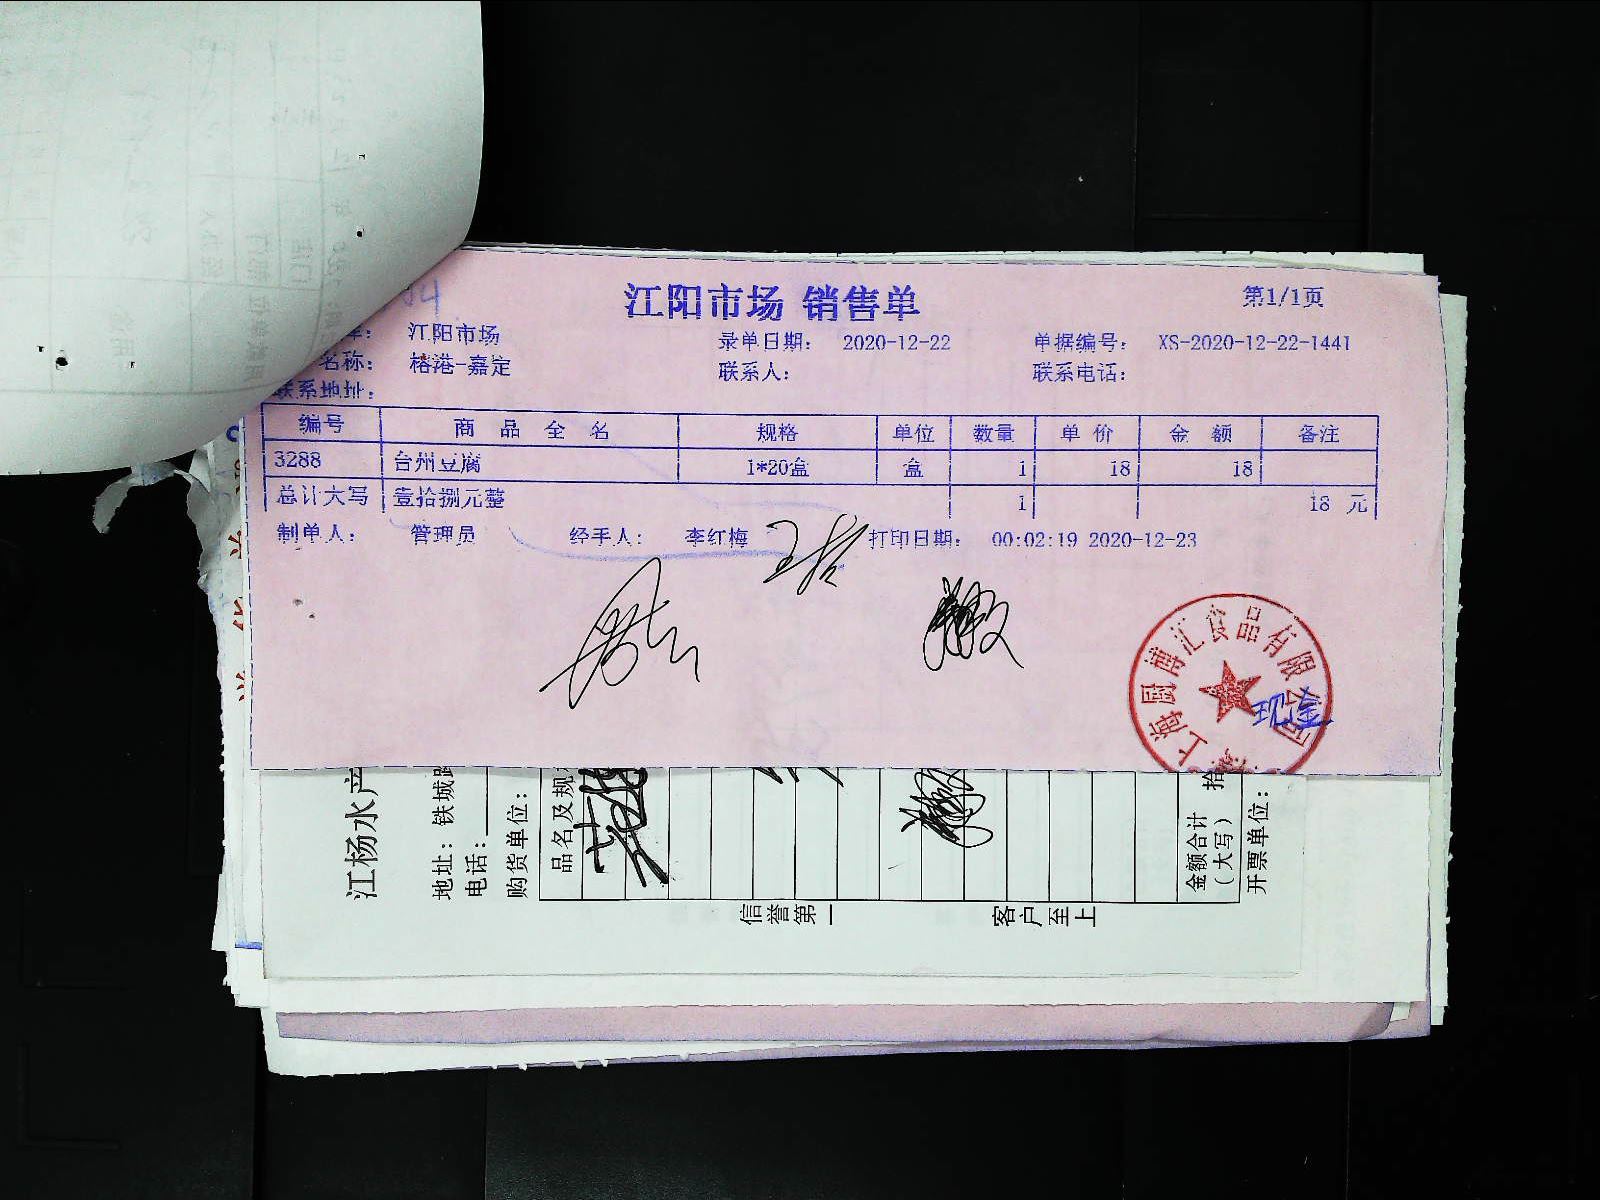 江阳市场 销售单
第1/1页
库： 江阳市场 录单日期： 2020-12-22 单据编号： XS-2020-12-22-1441
名称： 榕港-嘉定 联系人： 联系电话：
联系地址：
编号 商品全名 规格 单位 数量 单价 金额 备注
3288 台州豆腐 1*20盒 盒 1 18 18
总计大写 壹拾捌元整 1 18 元
制单人： 管理员 经手人： 李红梅 打印日期： 00:02:19 2020-12-23
上海厨博汇食品有限公司
现金
江杨水产
地址：铁城路
电话：
购货单位：
品名及规格
金额合计
（大写）
拾
开票单位：
信誉第一
客户至上